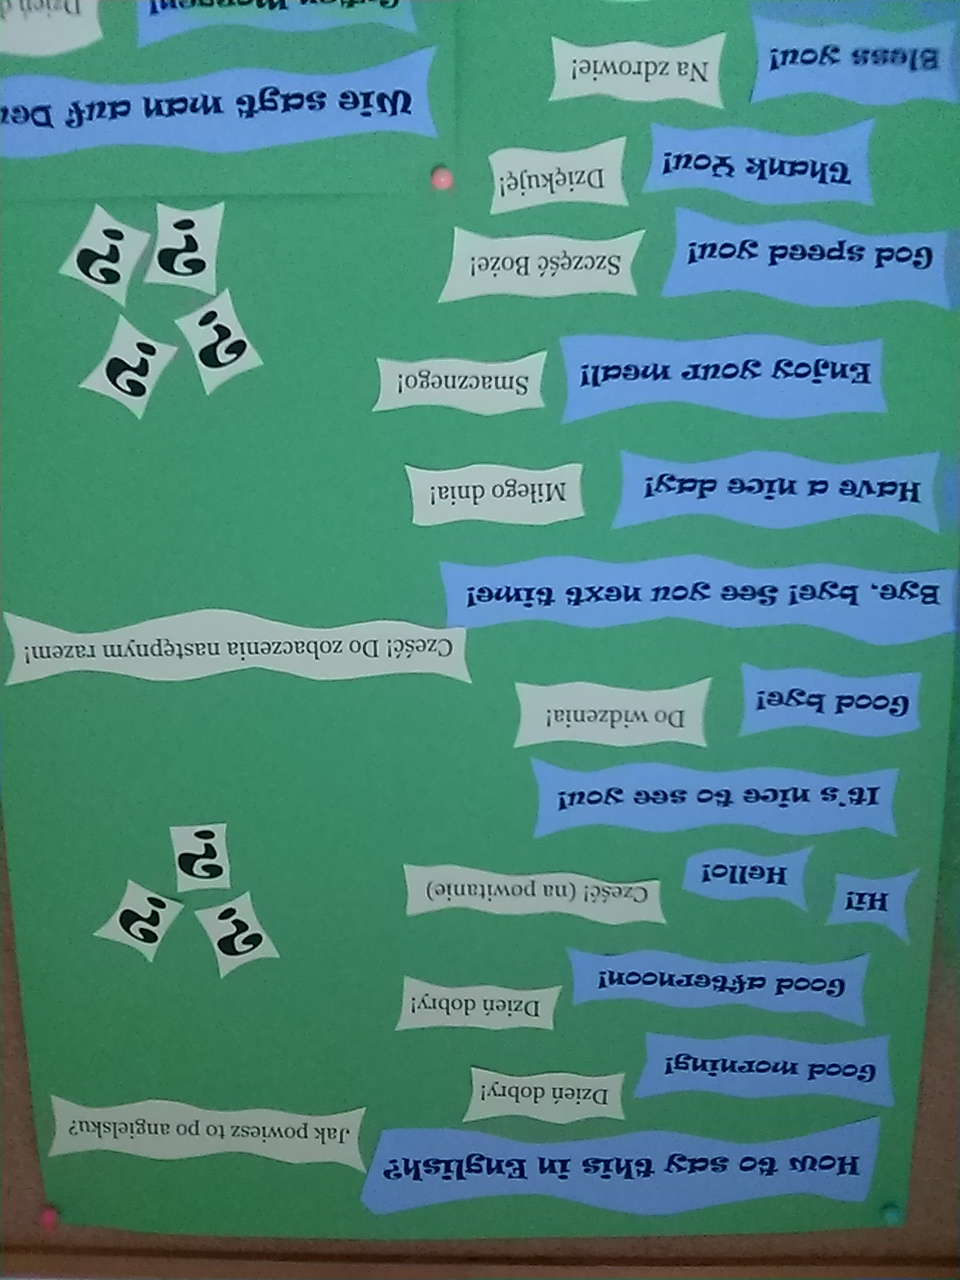 How to say this in English?
Jak powiesz to po angielsku?
Good morning!
Dzień dobry!
Good afternoon!
Dzień dobry!
Hi!
Hello!
Cześć! (na powitanie)
It's nice to see you!
Good bye!
Do widzenia!
Bye, bye! See you next time!
Cześć! Do zobaczenia następnym razem!
Have a nice day!
Miłego dnia!
Enjoy your meal!
Smacznego!
God speed you!
Szczęść Boże!
Thank You!
Dziękuję!
Bless you!
Na zdrowie!
?
?
?
?
?
?
?
Wie sagt man auf
Guten Morgen!
Dzień